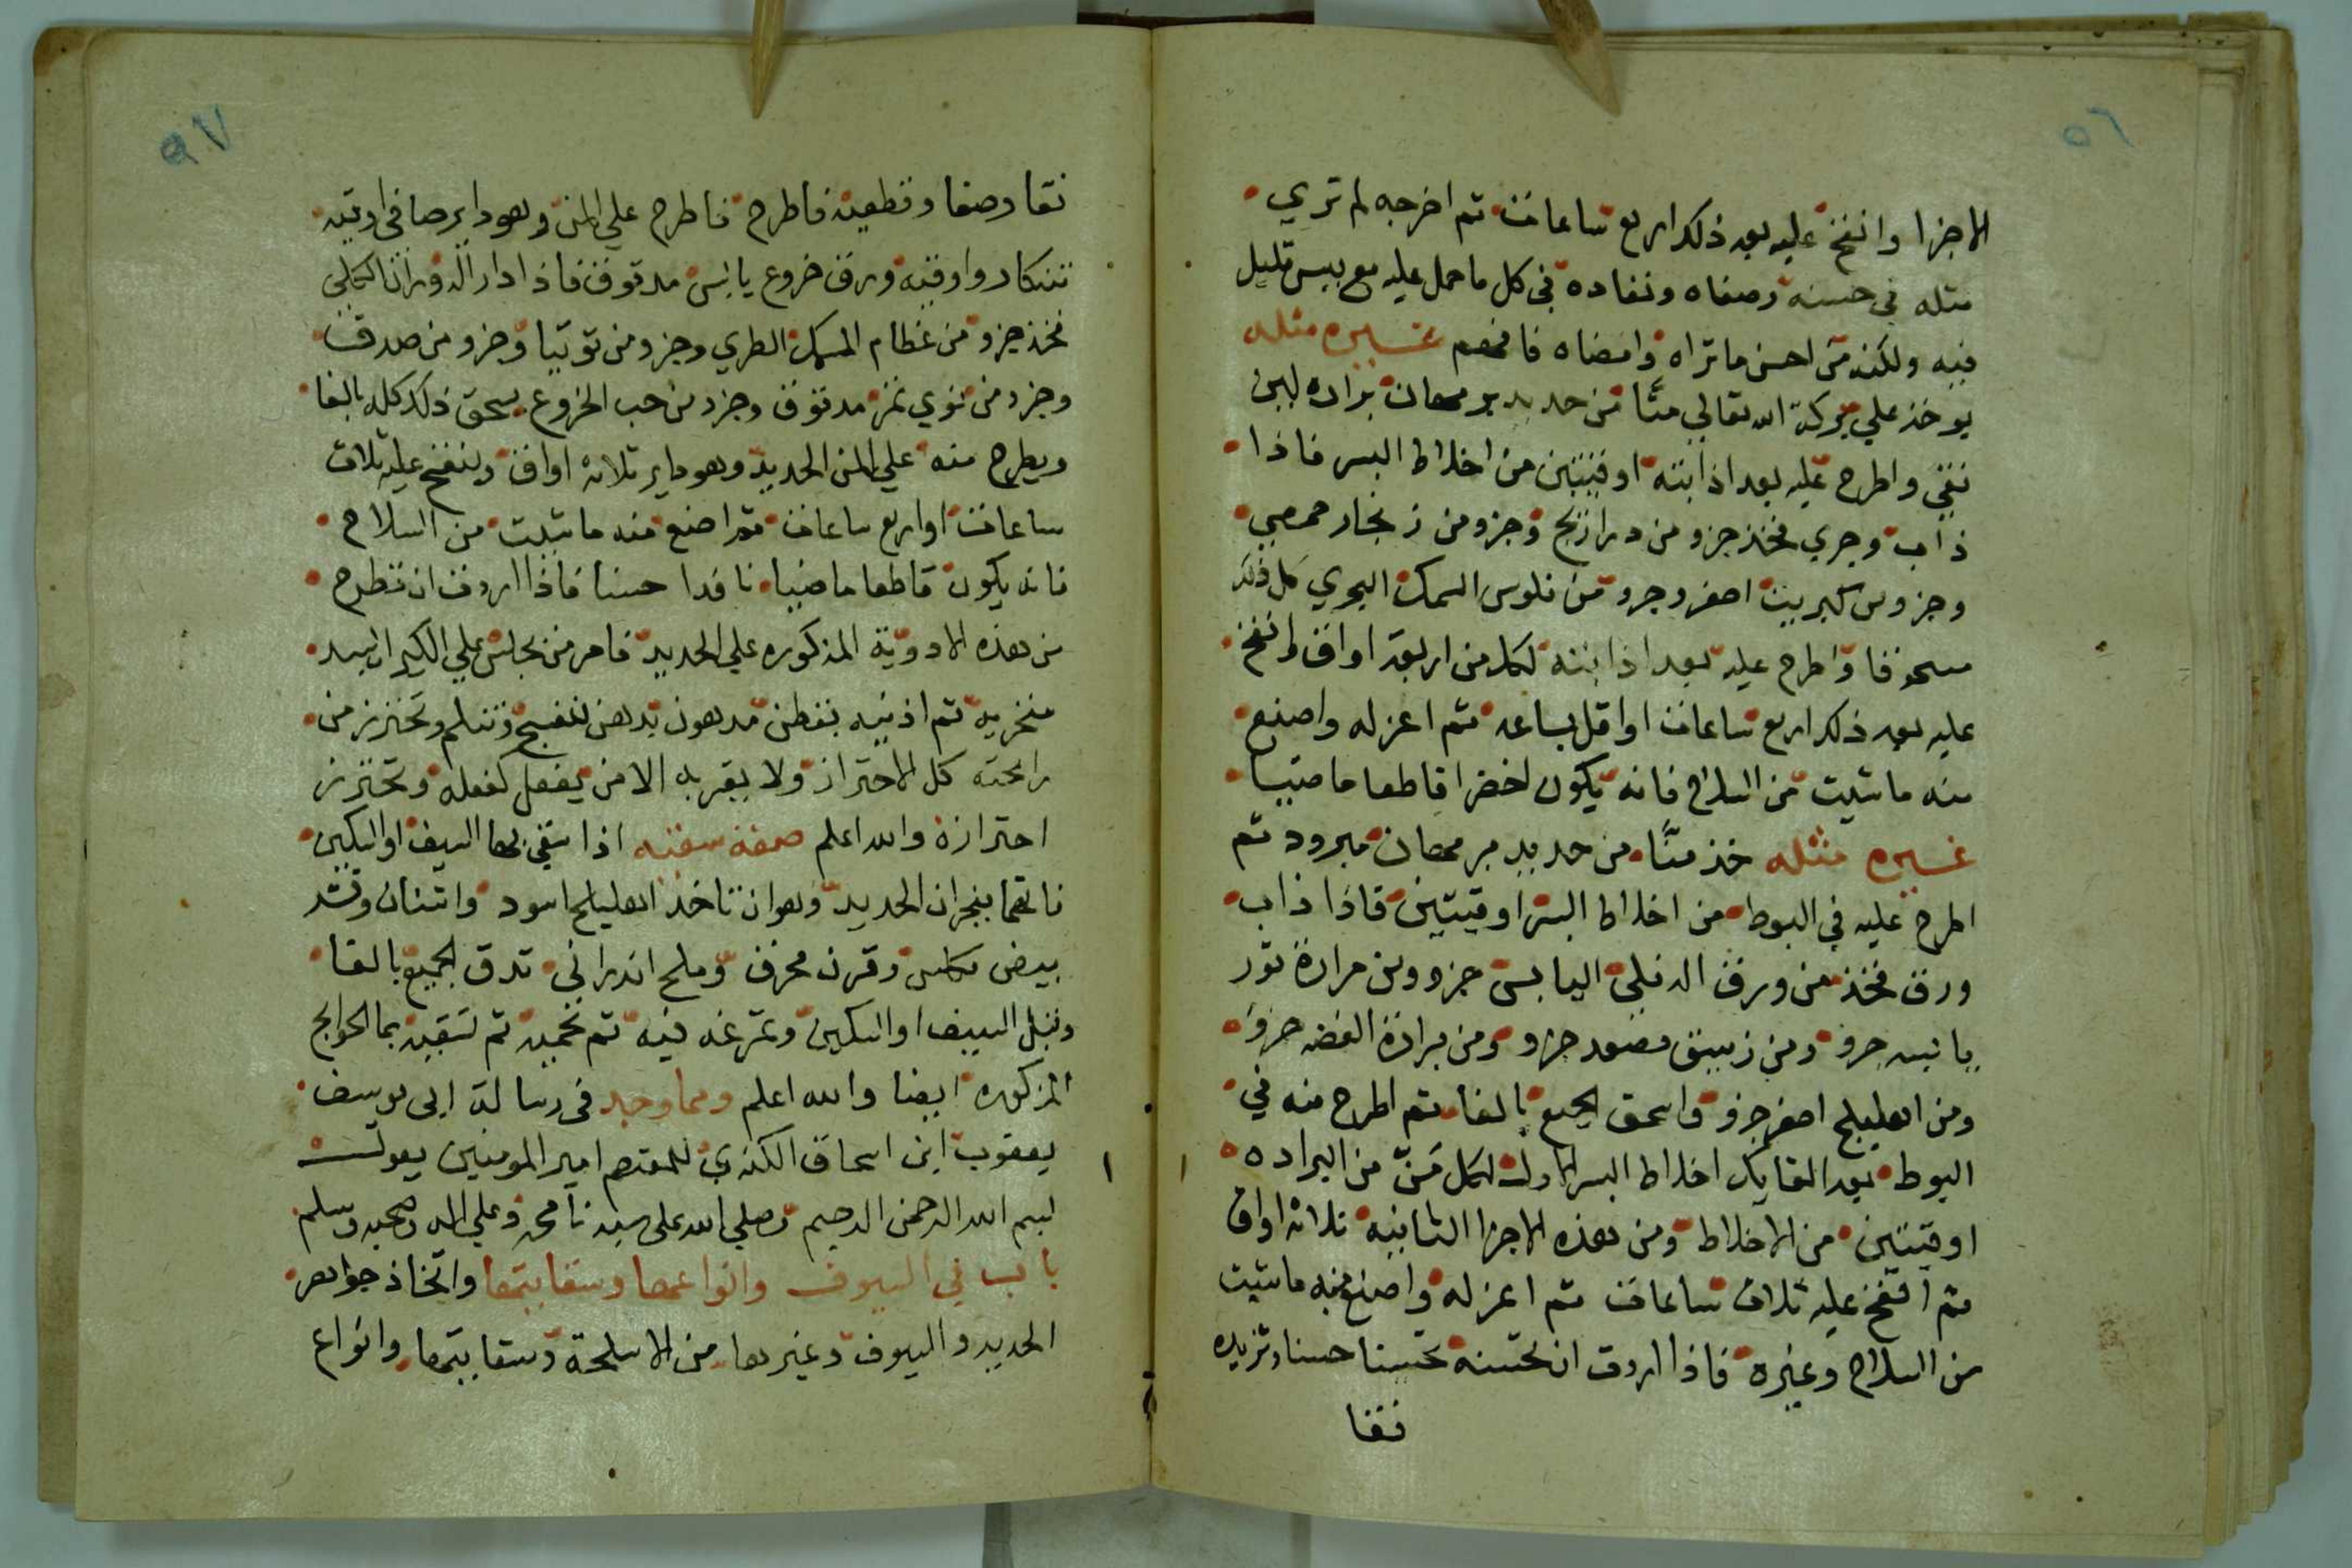 ٥٦
الاجزا وانفخ عليه بعد ذلك اربع ساعات ثم اخرجه لم تري
مثله في حسنه وصفاه ونفاده في كل ما حمل عليه مع يبس قليل
فيه ولكنه من احسن ما تراه وامضاه فافهم غيره مثله
يوخذ علي بركة الله تعالي منًّا من حديد برمهان برادة لين
نقي واطرح عليه بعد اذابته اوقيتين من اخلاط البسر فاذا
ذاب وجري فخذ جزو من دراريح وجزو من زنجار حمصي
وجزو من كبريت اصفر وجزو من فلوس السمك البحري كل ذلك
مسحوقا واطرح عليه بعد اذابته لكل من اربعة اواق وانفخ
عليه بعد ذلك اربع ساعات او اقل بساعه ثم اعزله واصنع
منه ما شيت من السلاح فانه يكون اخضرا قاطعا ماضييا
غيره مثله خذ منًّا من حديد برمهان مبرود ثم
اطرح عليه في البوط من اخلاط البسر اوقيتين فاذا ذاب
ورق فخذ من ورق الدفلي اليابس جزو ومن مرارة ثور
يابسه جزو ومن زيبق مصعد جزو ومن برادة الفضه جزو
ومن اهليلج اصفر جزو واسحق الجميع بالغا ثم اطرح منه في
البوط بعد القايك اخلاط البسر الاولة لكل منّ من البراده
اوقيتين من الاخلاط ومن هذه الاجزا الثانيه ثلاثة اواق
ثم انفخ عليه ثلاث ساعات ثم اعزله واصنع منه ما شيت
من السلاح وغيره فاذا اردت ان تحسنه تحسينا حسنا وتزيده
نقا
٥٧
نقا وصفا وقطعيه فاطرح فاطرح علي المن وهو داير صافي اوقيه
تنكار واوقيه ورق خروع يابس مدقوق فاذا دار الدوران الكلي
فخذ جزو من عظام السمك الطري وجزو من توتيا وجزو من صدف
وجزو من نوي تمر مدقوق وجزو من حب الخروع يسحق ذلك كله بالغا
ويطرح منه علي المن الحديد وهو داير ثلاثة اواق وينفخ عليه ثلاث
ساعات او اربع ساعات ثم اصنع منه ما شيت من السلاح
فانه يكون قاطعا ماضيا نافدا حسنا فاذا اردت ان تطرح
من هذه الادوية المذكوره علي الحديد فامر من يجلس علي الكير ان يسد
منخريه ثم اذنيه بقطن مدهون بدهن بنفسج وتتلثم وتحترز من
رائحته كل الاحتراز ولا يقربه الا من يفعل كفعله وتحترز
احترازه والله اعلم صفة سقيه اذا سقي بها السيف او السكين
فانهما ينجران الحديد وهو ان تاخذ اهليلج اسود واشنان وقشر
بيض مكلس وقرن محرق وملح اندراني تدق الجميع بالغا
وتبل السيف او السكين وتمرغه فيه ثم تحميه ثم تسقيه بما الحوايج
المذكوره ايضا والله اعلم ومما وجد في رسالة ابي يوسف
يعقوب ابن اسحاق الكندي للمعتصم امير المومنين يعولت
بسم الله الرحمن الرحيم وصلي الله علي سيدنا محمد وعلي اله وصحبه وسلم
باب في السيوف وانواعها وسقايتها واتخاذ جواهر
الحديد والسيوف وغيرها من الاسلحة وسقايتها وانواع